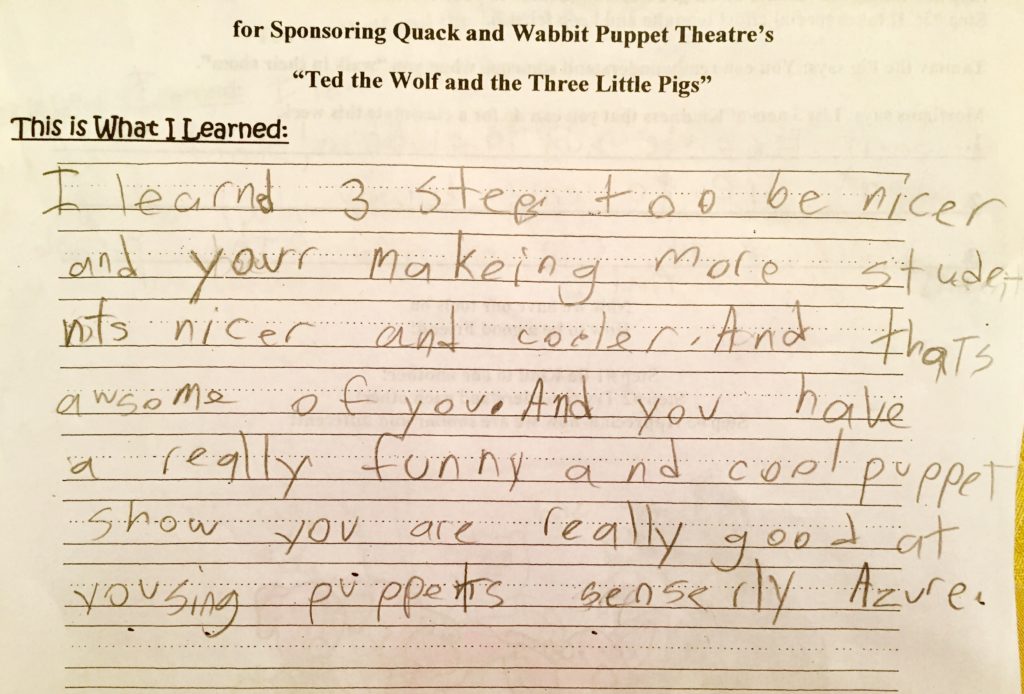 for Sponsoring Quack and Wabbit Puppet Theatre's
"Ted the Wolf and the Three Little Pigs"
This is What I Learned:
I learnd 3 steps too be nicer
and yourr makeing more studen
nts nicer and cooler. And thats
awsome of you. And you have
a really funny and cool puppet
show you are really good at
yousing puppetts senserly Azure.